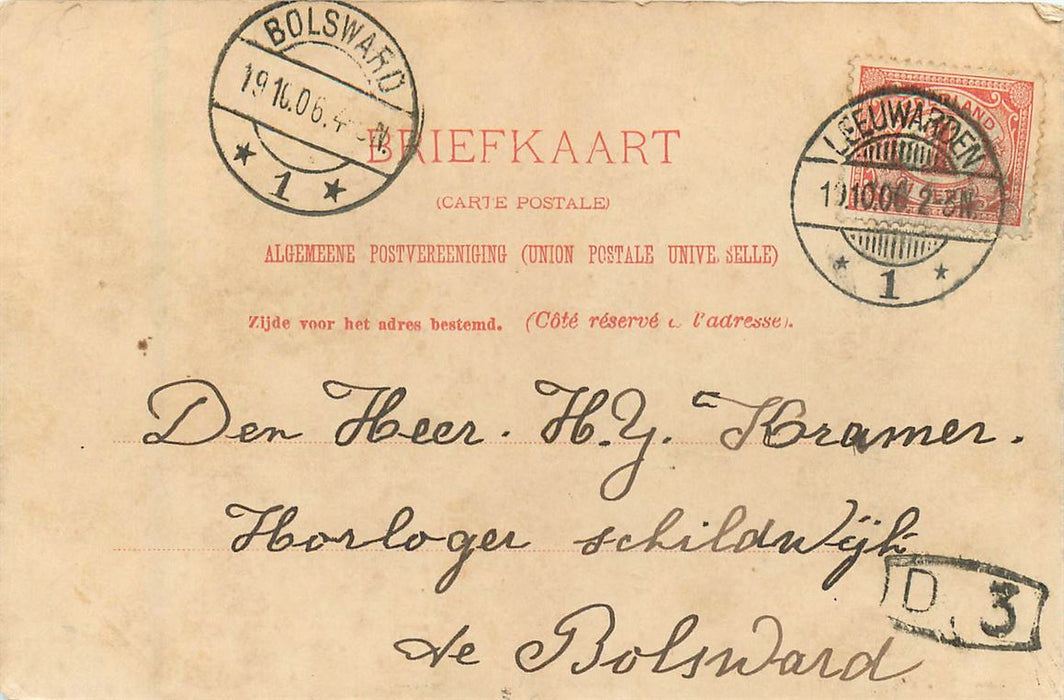 BOLSWARD
19.10.06. 4- N.
1
LEEUWARDEN
19.10.06 2-3N.
1
BRIEFKAART
(CARTE POSTALE)
ALGEMEENE POSTVEREENIGING (UNION POSTALE UNIVE SELLE)
Zijde voor het adres bestemd. (Côté réservé à l'adresse).
Den Heer. H.Y. Kramer.
Horloger schildwijk
te Bolsward
D 3